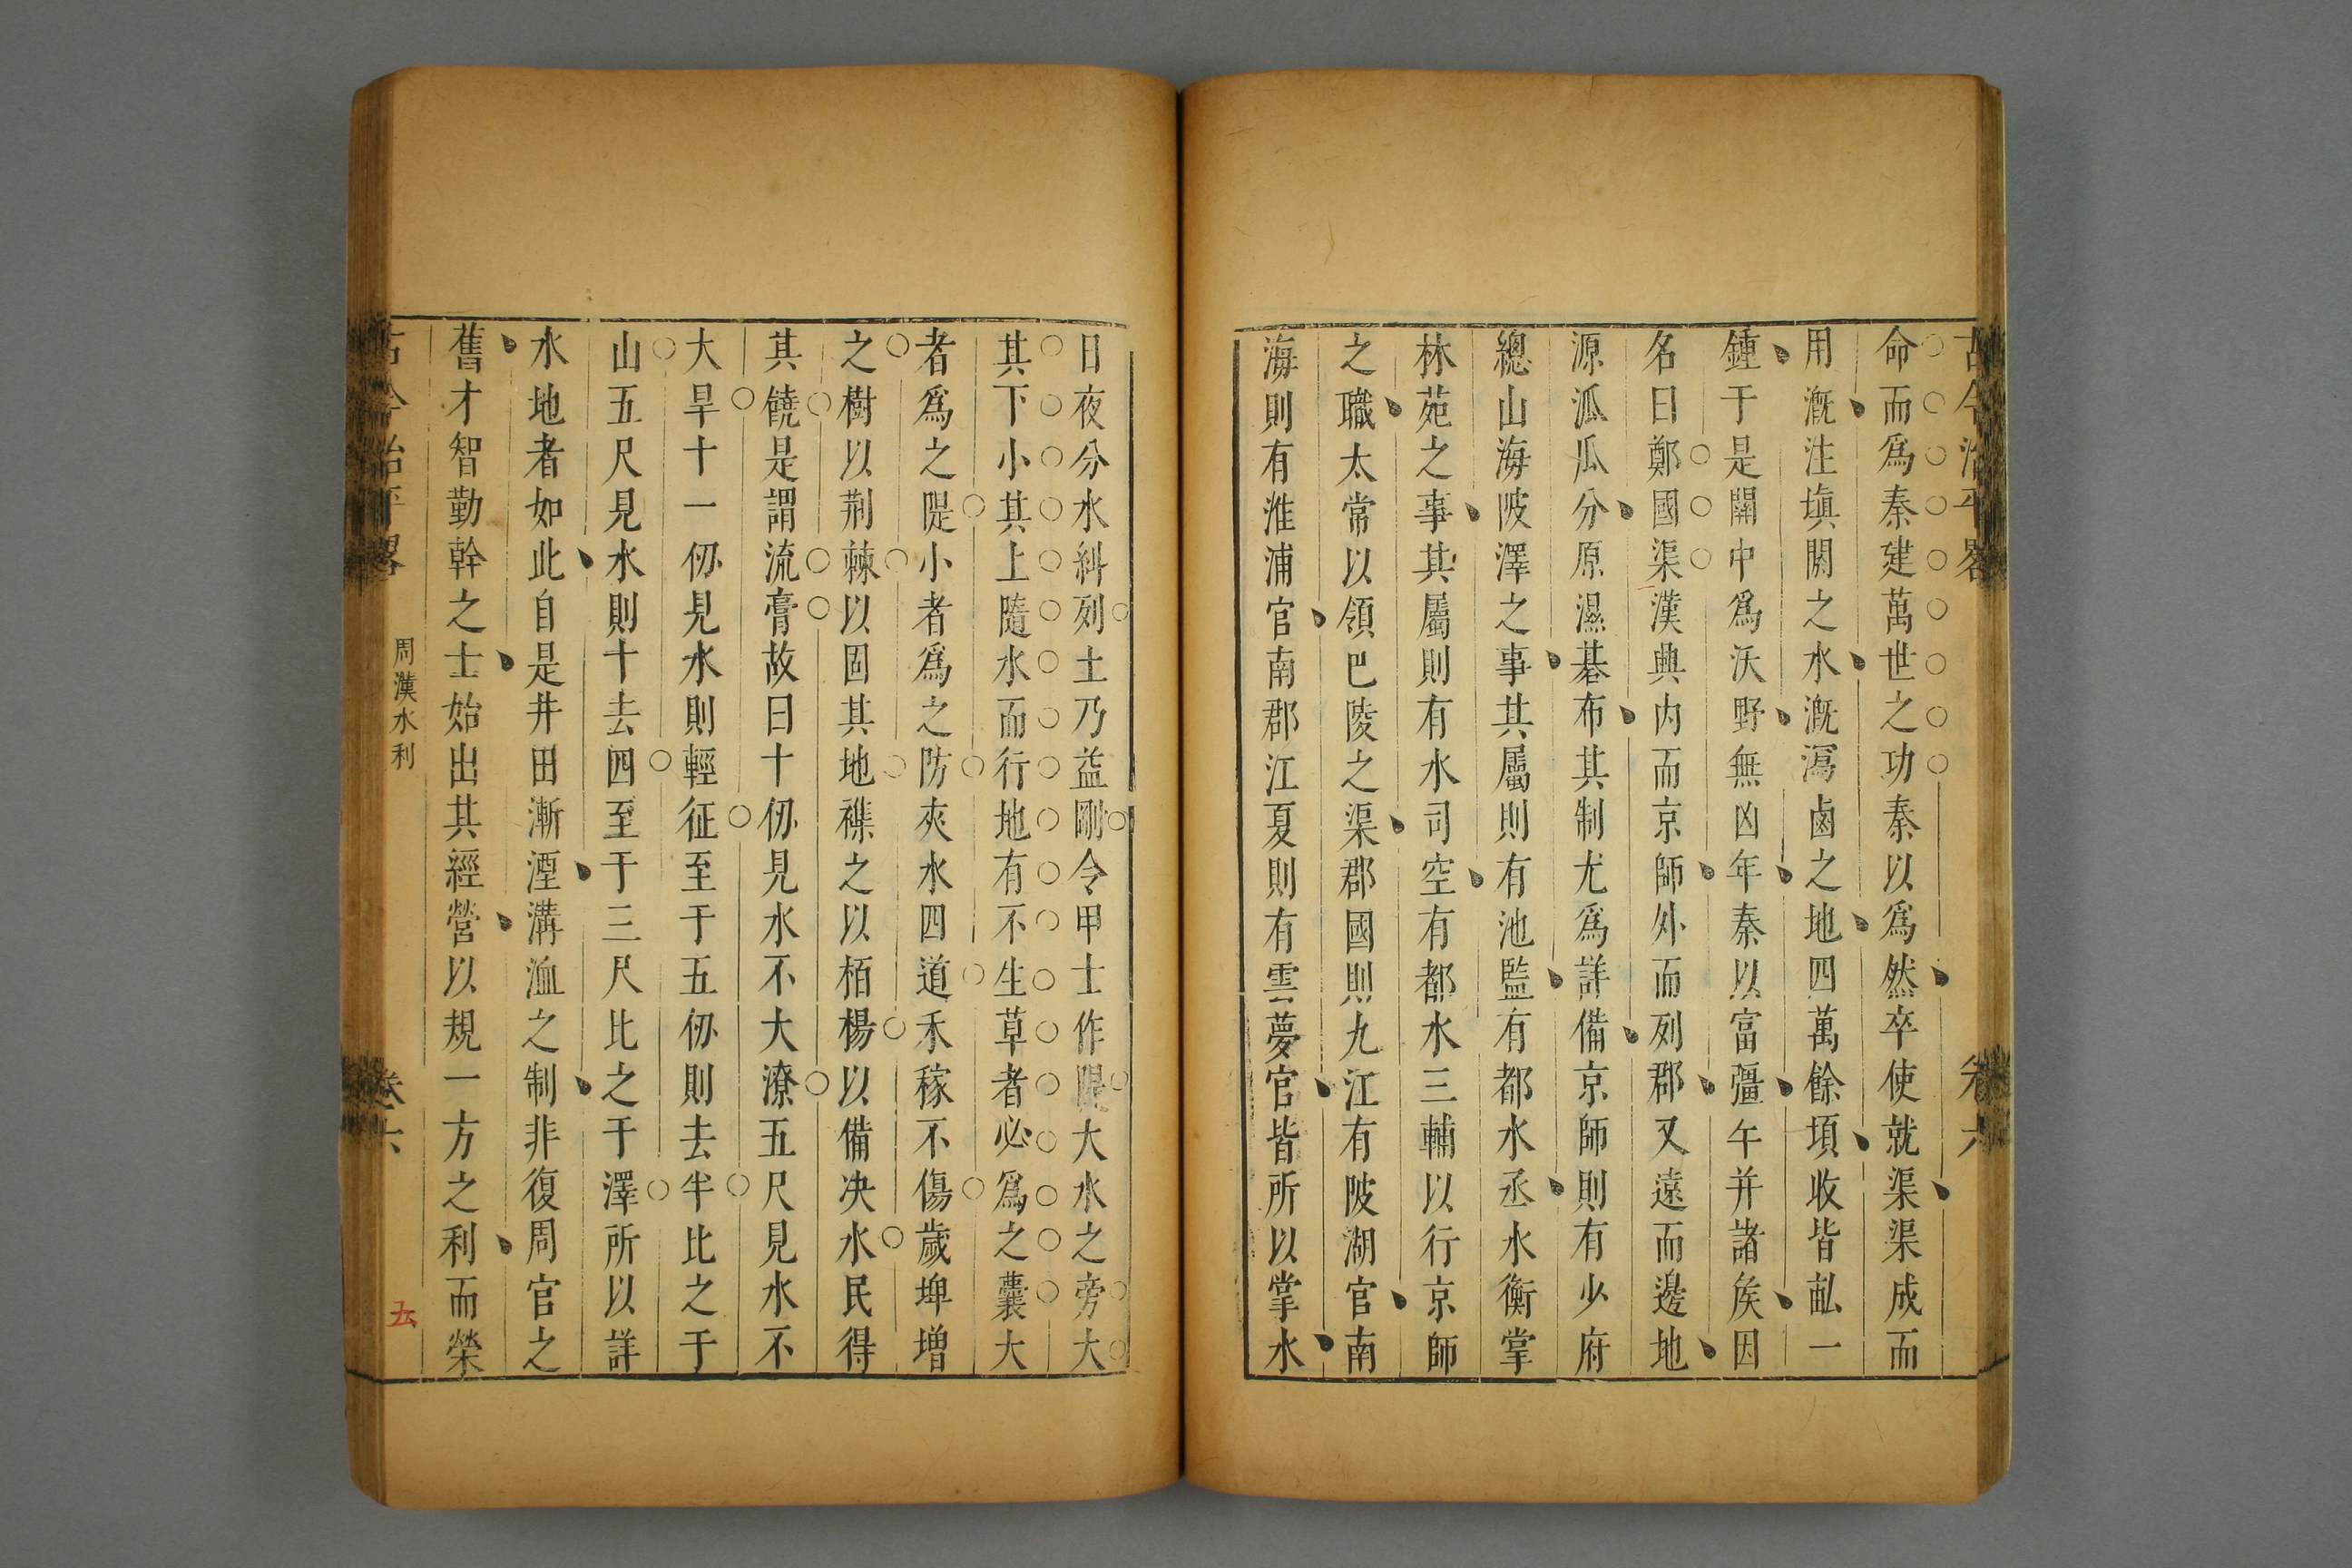 古今治平畧 卷六
命而爲秦建萬世之功秦以爲然卒使就渠渠成而
用漑注塡閼之水漑瀉鹵之地四萬餘頃收皆畆一
鍾于是關中爲沃野無凶年秦以富彊午并諸矦因
名曰鄭國渠漢興内而京師外而列郡又遠而邊地
源泒瓜分原濕碁布其制尤爲詳備京師則有少府
總山海陂澤之事其屬則有池監有都水丞水衡掌
林苑之事其屬則有水司空有都水三輔以行京師
之職太常以領巴陵之渠郡國則九江有陂湖官南
海則有淮浦官南郡江夏則有雲夢官皆所以掌水
日夜分水糾列土乃益剛令甲士作隄大水之旁大
其下小其上隨水而行地有不生草者必爲之囊大
者爲之隄小者爲之防夾水四道禾稼不傷歲埤增
之樹以荆棘以固其地襍之以栢楊以備决水民得
其饒是謂流膏故曰十仞見水不大潦五尺見水不
大旱十一仞見水則輕征至于五仞則去半比之于
山五尺見水則十去四至于三尺比之于澤所以詳
水地者如此自是井田漸湮溝洫之制非復周官之
舊才智勤幹之士始出其經營以規一方之利而榮
古今治平畧 周漢水利 卷六 五